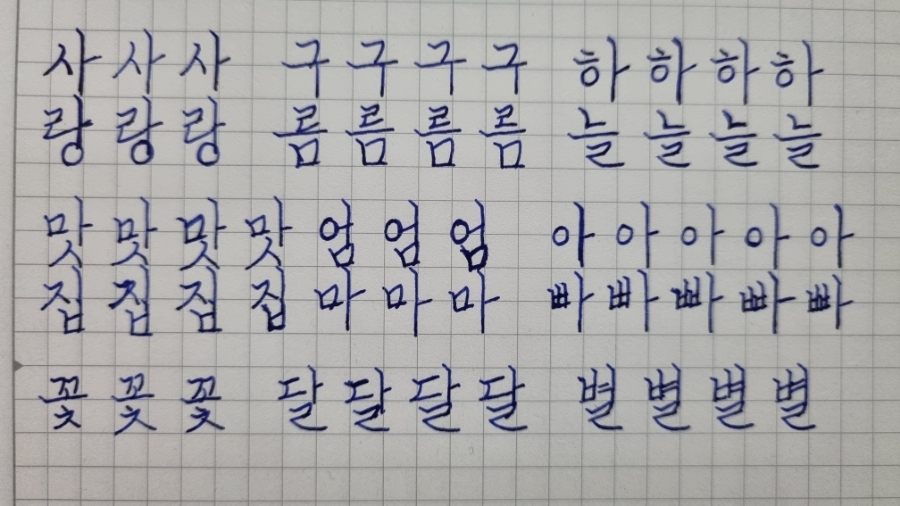 사 사 사 구 구 구 구 하 하 하 하
랑 랑 랑 름 름 름 름 늘 늘 늘 늘
맛 맛 맛 맛 엄 엄 엄 아 아 아 아 아
집 집 집 집 마 마 마 빠 빠 빠 빠 빠
꽃 꽃 꽃 달 달 달 달 별 별 별 별